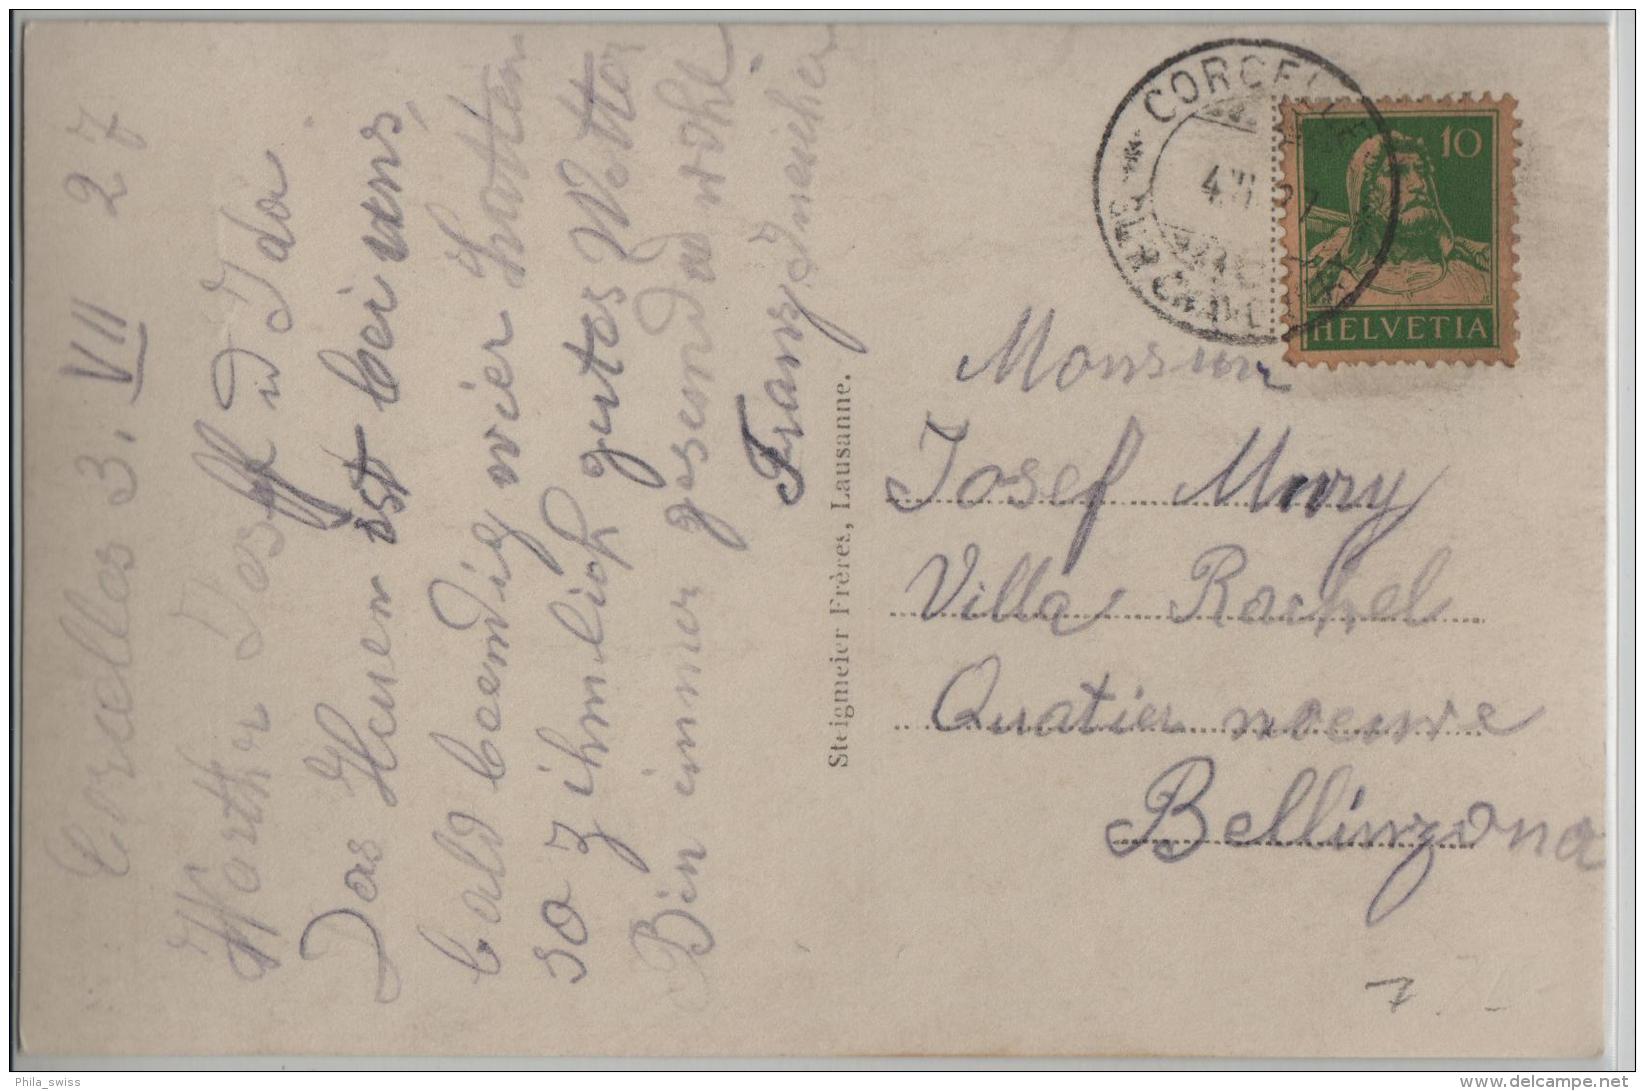 Corcelles 3. VII 27
Werther Joseff u Ida
Das Heuen ist bei uns,
bald beendig wier hatten
so zihmlich gutes Wetter
Bin immer gesund u wohl
Franz
Steigmeier Frères, Lausanne.
CORCELLES
10
HELVETIA
Monsiur
Josef Mury
Villa Rachel
Quatier noeuve
Bellinzona
7.
Phila_swiss
delcampe.net